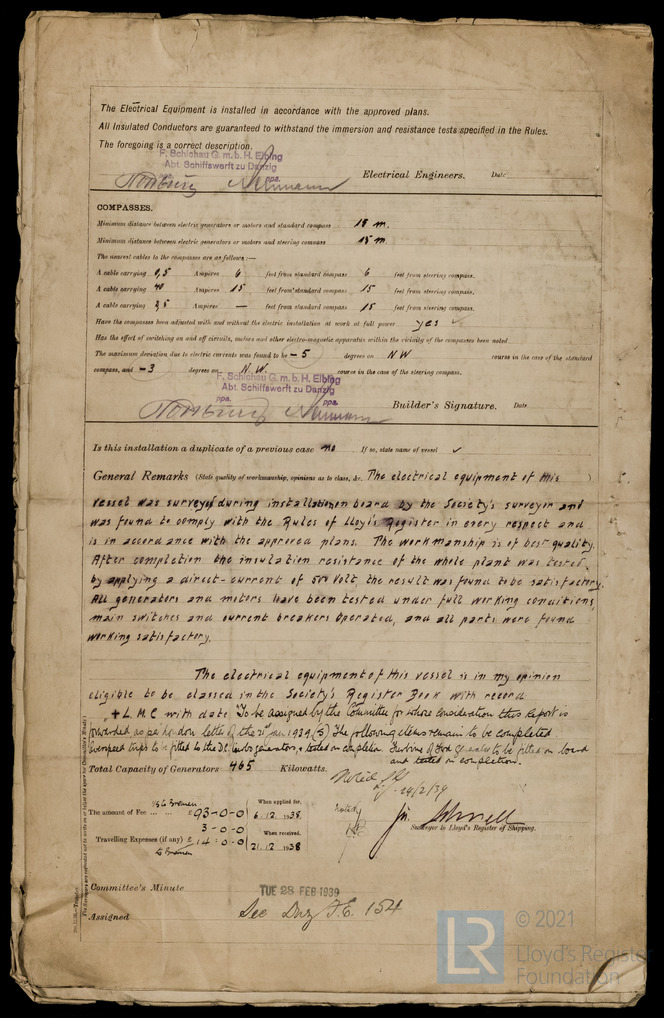 The Electrical Equipment is installed in accordance with the approved plans.
All Insulated Conductors are guaranteed to withstand the immersion and resistance tests specified in the Rules.
The foregoing is a correct description.
F. Schichau G. m. b. H. Elbing
Abt. Schiffswerft zu Danzig
ppa. ppa.
Electrical Engineers. Date
COMPASSES.
Minimum distance between electric generators or motors and standard compass 18 m.
Minimum distance between electric generators or motors and steering compass 18 m.
The nearest cables to the compasses are as follows:—
A cable carrying 0,5 Amperes 6 feet from standard compass 6 feet from steering compass.
A cable carrying 40 Amperes 15 feet from standard compass 15 feet from steering compass.
A cable carrying 3,5 Amperes — feet from standard compass 15 feet from steering compass.
Have the compasses been adjusted with and without the electric installation at work at full power yes ✓
Has the effect of switching on and off circuits, motors and other electro-magnetic apparatus within the vicinity of the compasses been noted
The maximum deviation due to electric currents was found to be – 5 degrees on NW course in the case of the standard
compass, and – 3 degrees on N.W. course in the case of the steering compass.
F. Schichau G. m. b. H. Elbing
Abt. Schiffswerft zu Danzig
ppa. ppa.
Builder's Signature. Date
Is this installation a duplicate of a previous case no If so, state name of vessel ✓
General Remarks (State quality of workmanship, opinions as to class, &c. The electrical equipment of this )
vessel was surveyed during installation on board by the Society's surveyor and
was found to comply with the Rules of Lloyd's Register in every respect and
is in accordance with the approved plans. The workmanship is of best quality.
After completion the insulation resistance of the whole plant was tested
by applying a direct-current of 500 Volt, the result was found to be satisfactory.
All generators and motors have been tested under full working conditions,
main switches and current breakers operated, and all parts were found
working satisfactory.
The electrical equipment of this vessel is in my opinion
eligible to be classed in the Society's Register Book with record
+ L.M.C with date To be assigned by the Committee for whose consideration this Report is
forwarded as per London letter of the 21st Jan 1939 (S) The following items remain to be completed
overspeed trips to be fitted to the D.C. turbo generators, & tested on completion. to be fitted on board
and tested on completion.
Total Capacity of Generators 465 Kilowatts.
Noted
24/2/39
The amount of Fee ... ... £ 93–0–0
3–0–0
Travelling Expenses (if any) £ 14–0–0
to Bremen
When applied for,
6.12.1938
When received,
21.12.1938
Surveyor to Lloyd's Register of Shipping.
Committee's Minute TUE 28 FEB 1939
Assigned See Dnz F.E. 154
LR
© 2021
Lloyd's Register
Foundation